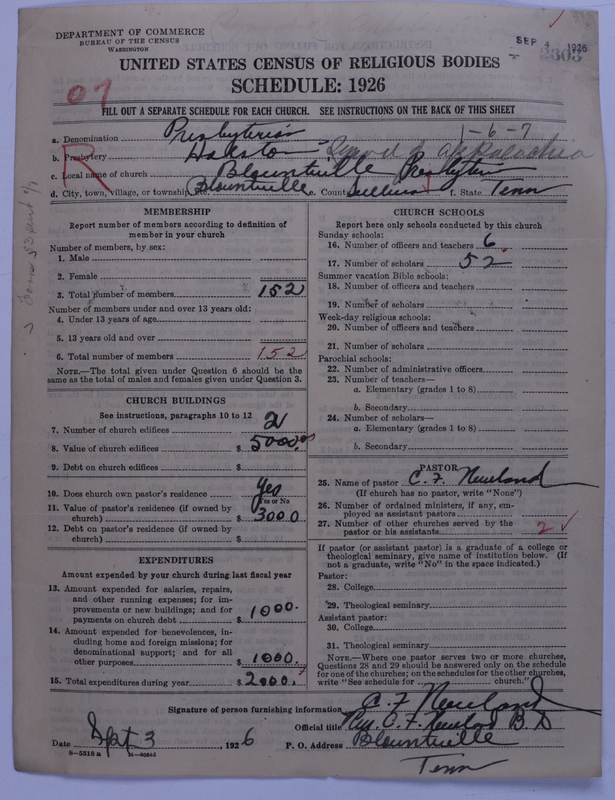 DEPARTMENT OF COMMERCE
BUREAU OF THE CENSUS
WASHINGTON
SEP 4 1926
2303
UNITED STATES CENSUS OF RELIGIOUS BODIES
SCHEDULE: 1926
07
FILL OUT A SEPARATE SCHEDULE FOR EACH CHURCH. SEE INSTRUCTIONS ON THE BACK OF THIS SHEET
1-6-7
R
a. Denomination Presbyterian
b. Presbytery Holston Synod of Appalachia
c. Local name of church Blountville Presbyterian
d. City, town, village, or township, etc. Blountville e. County Sullivan f. State Tenn
MEMBERSHIP
Report number of members according to definition of member in your church
Number of members, by sex:
1. Male
2. Female
3. Total number of members 152
Number of members under and over 13 years old:
4. Under 13 years of age
5. 13 years old and over
6. Total number of members 152
NOTE.—The total given under Question 6 should be the same as the total of males and females given under Question 3.
CHURCH BUILDINGS
See instructions, paragraphs 10 to 12
7. Number of church edifices 2
8. Value of church edifices $ 5000.00
9. Debt on church edifices $
10. Does church own pastor's residence Yes
Yes or No
11. Value of pastor's residence (if owned by church) $ 3000
12. Debt on pastor's residence (if owned by church) $
EXPENDITURES
Amount expended by your church during last fiscal year
13. Amount expended for salaries, repairs, and other running expenses; for improvements or new buildings; and for payments on church debt $ 1000.
14. Amount expended for benevolences, including home and foreign missions; for denominational support; and for all other purposes $ 1000.
15. Total expenditures during year $ 2000.
CHURCH SCHOOLS
Report here only schools conducted by this church
Sunday schools:
16. Number of officers and teachers 6
17. Number of scholars 52
Summer vacation Bible schools:
18. Number of officers and teachers
19. Number of scholars
Week-day religious schools:
20. Number of officers and teachers
21. Number of scholars
Parochial schools:
22. Number of administrative officers
23. Number of teachers—
a. Elementary (grades 1 to 8)
b. Secondary
24. Number of scholars—
a. Elementary (grades 1 to 8)
b. Secondary
PASTOR
25. Name of pastor C. F. Newland
(If church has no pastor, write "None")
26. Number of ordained ministers, if any, employed as assistant pastors
27. Number of other churches served by the pastor or his assistants 2
If pastor (or assistant pastor) is a graduate of a college or theological seminary, give name of institution below. (If not a graduate, write "No" in the space indicated.)
Pastor:
28. College
29. Theological seminary
Assistant pastor:
30. College
31. Theological seminary
NOTE.—Where one pastor serves two or more churches, Questions 28 and 29 should be answered only on the schedule for one of the churches; on the schedules for the other churches, write "See schedule for church."
Signature of person furnishing information C. F. Newland
Official title C. F. Newland B. D
Date Sept 3, 1926 P. O. Address Blountville
Tenn
8-5518 a